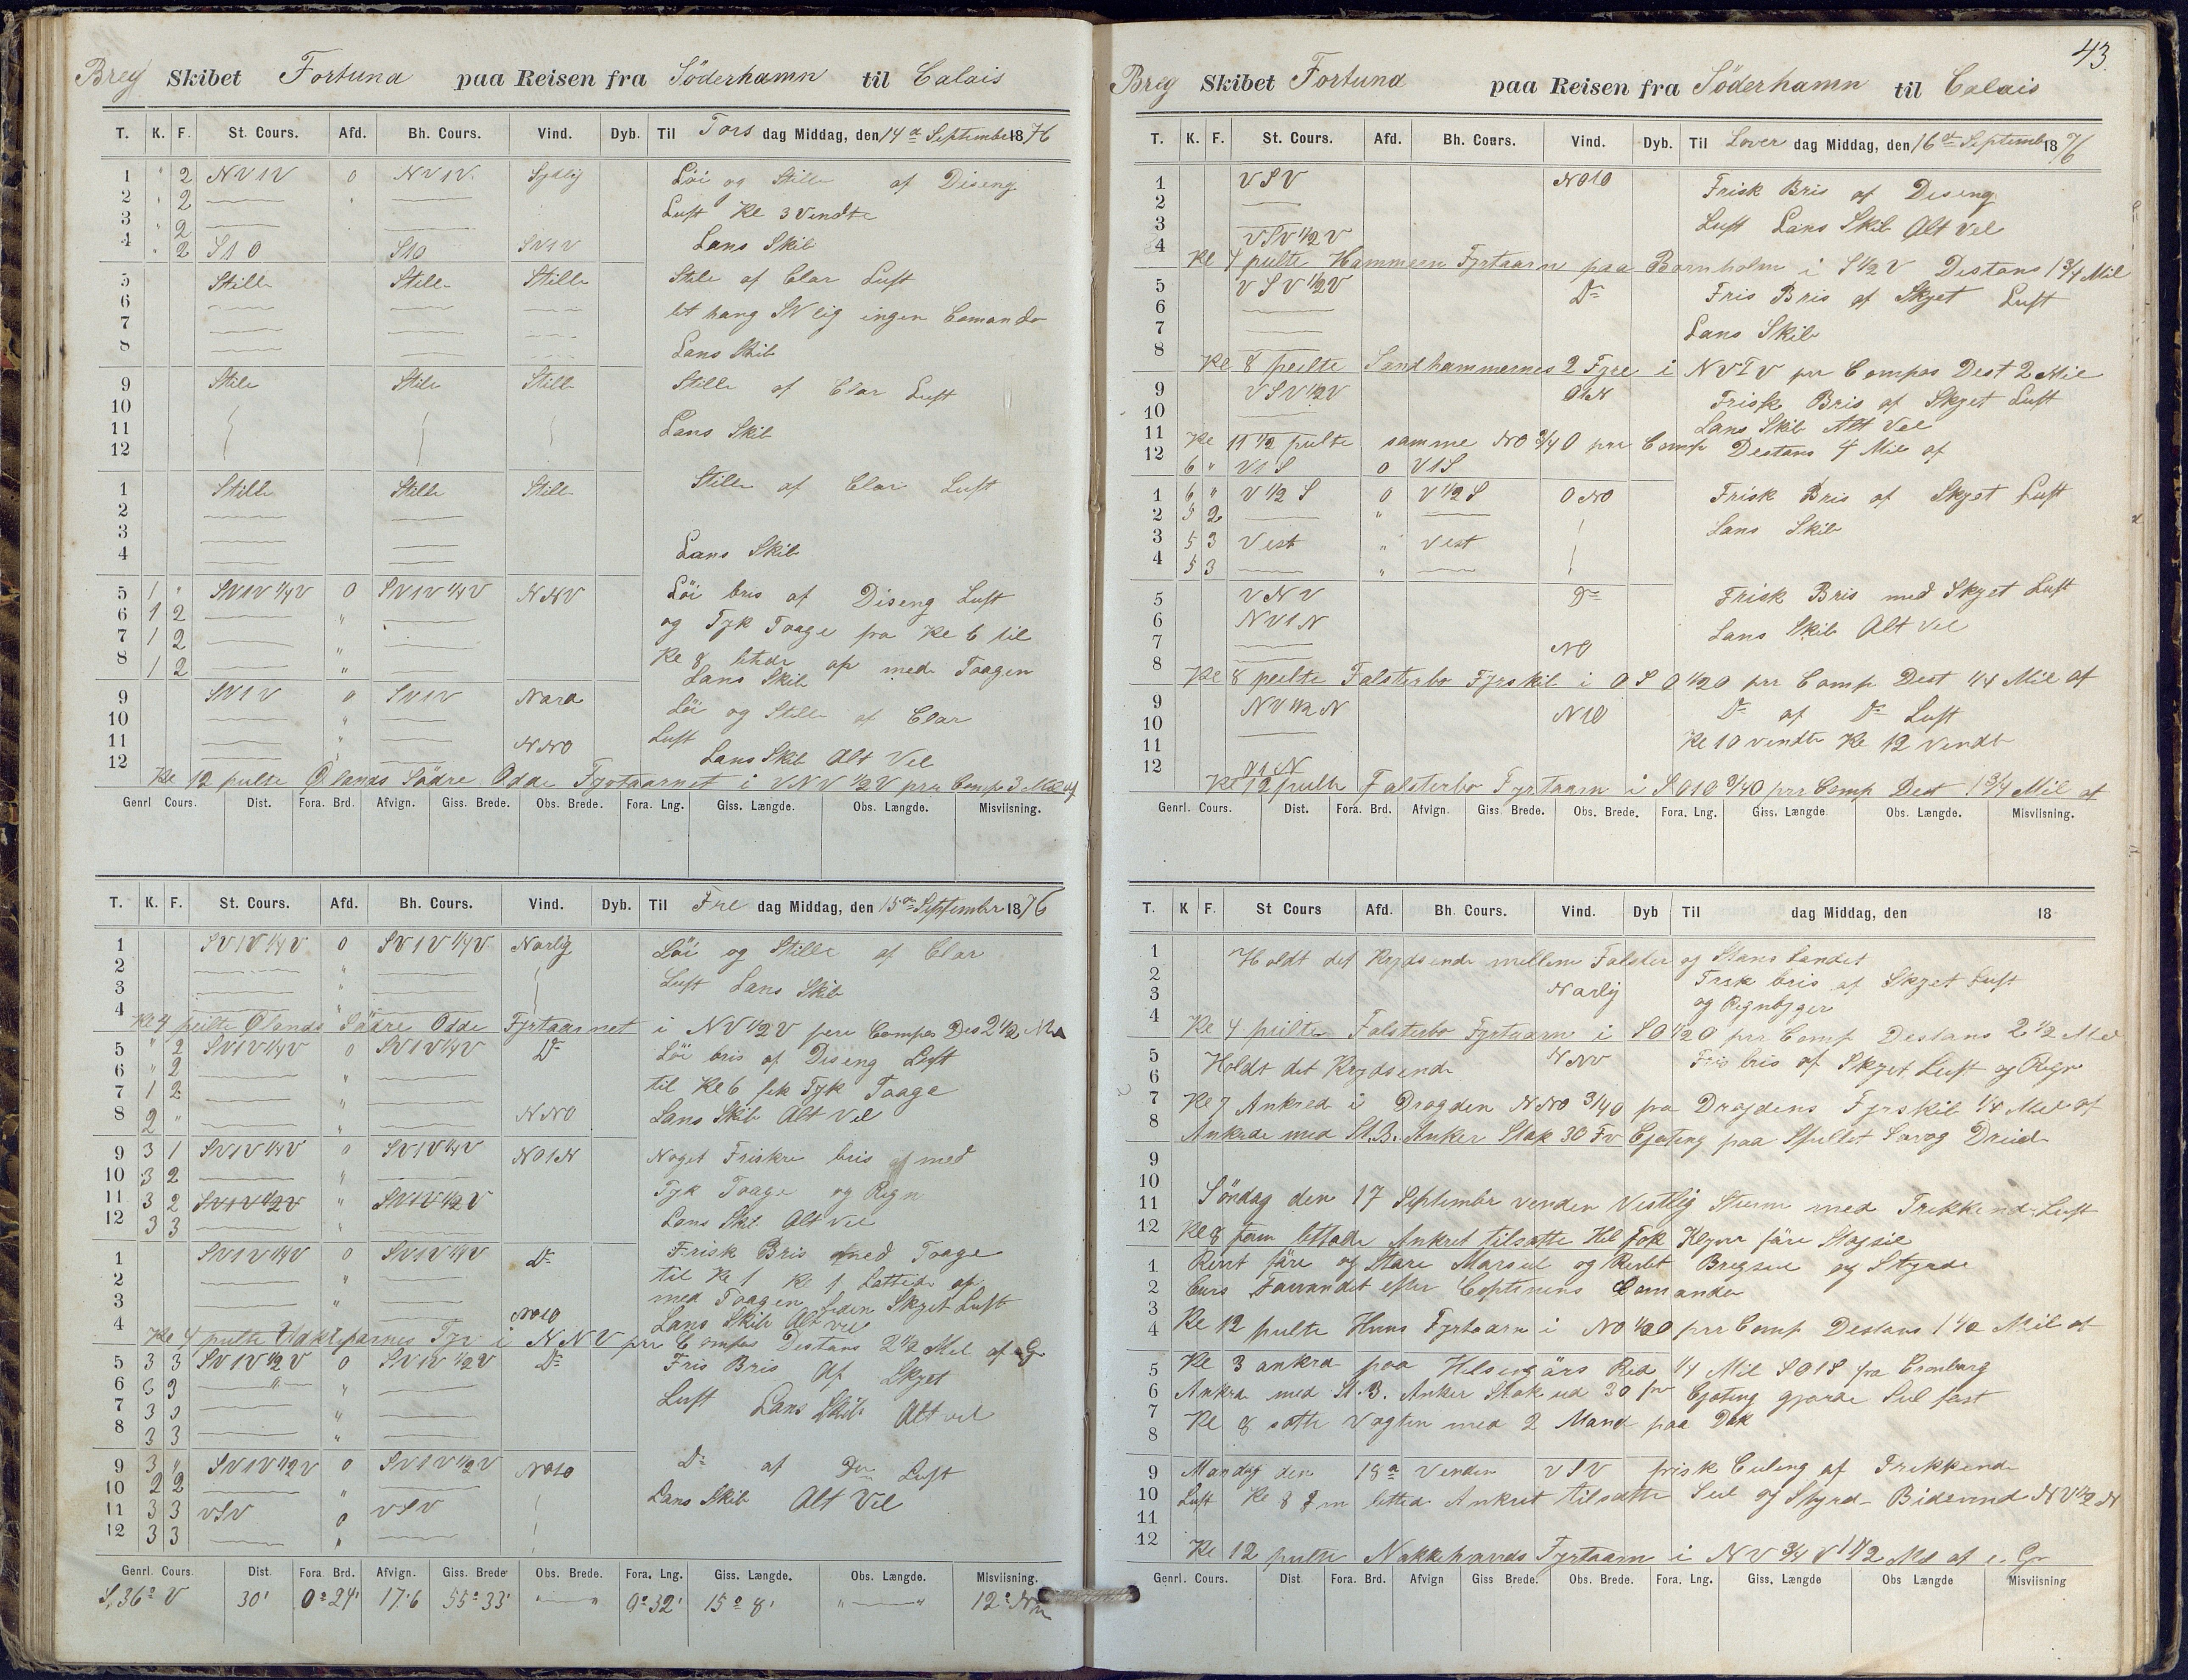 Breg Skibet Fortuna paa Reisen fra Söderhamn til Calais
T. K. F. St. Cours. Afd. Bh. Cours. Vind. Dyb. Til Tors dag Middag, den 14de September 1876
1 " 2 NV1V 0 NV1V Sydlig Löi og Stille af Diseng
2 " 2 Luft Kl 3 Vendte
3 " 2
4 " 2 S10 S10 SV1V Lans Skib
5 Stille Stille Stille Stile af Clar Luft
6 let hang SV lig ingen Comando
7
8 Lans Skib
9 Stile Stile Stille Stille af Clar Luft
10
11 Lans Skib
12
1 Stille Stille Still Stille af Clar Luft
2
3
4 Lans Skib
5 1 " SV1V 1/4 V 0 SV1V 1/4 V NNV Löi bris af Diseng Luft
6 1 2 " og Tyk Toage fra Kl 6 til
7 1 2 " Kl 8 letede op med Toagen
8 1 2 " Lans Skib
9 SV1V 0 SV1V Nara Löi og Stille af Clar
10 " Luft
11 " NNO
12 Lans Skib Alt Vel
Kl 12 pulte Ölands Södre Odde Fyrtaarnet i VNV 1/2 V prr Comp 3 Mil af
Genrl Cours. Dist. Fora. Brd. Afvign. Giss. Brede. Obs. Brede. Fora. Lng. Giss. Længde. Obs. Længde. Misviisning.
T. K. F. St. Cours. Afd. Bh. Cours. Vind. Dyb. Til Fre dag Middag, den 15de September 1876
1 SV1V 1/4 V 0 SV1V 1/4 V Narlig Löi og Stille af Clar
2 "
3 " Luft Lans Skib
4 "
Kl 4 peilte Ölands Södre Odde Fyrtaarnet i NV 1/2 V perr Compas Des 2 1/2 Mil
5 " 2 SV1V 1/4 V 0 SV1V 1/4 V Do Löi bris af Diseng Luft
6 " 2 "
7 1 2 " til Kl 6 fik Tyk Taage
8 2 " NNO Lans Skib Alt Vel
9 3 1 SV1V 1/4 V 0 SV1V 1/4 V NO1N Noget Friskre bris af med
10 3 2 " Tyk Toage og Regn
11 3 2 SV1V 1/2 V " SV1V 1/2 V
12 3 3 " Lans Skib Alt Vel
1 SV1V 1/4 V 0 SV1V 1/4 V Do Frisk Bris med Toage
2 " til Kl 1 Kl 1 Lettede op
3 " med Toagen Siden Skyet Luft
4 NO10 Lans Skib Alt vel
Kl 4 pulte Fyr i NNV prr Compas Destans 2 1/2 Mil af
5 3 3 SV1V 1/2 V 0 SV1V 1/2 V Do Fris Bris Af Skyet
6 3 3 "
7 3 3 " Luft Lans Skib Alt vel
8 3 3 "
9 3 " SV1V 1/2 V 0 SV1V 1/2 V NO10 Do af Do Luft
10 2 2 "
11 3 3 VSV 0 VSV Lans Skib Alt Vel
12 3 3 "
Genrl Cours. Dist Fora. Brd. Afvign. Giss. Brede Obs. Brede. Fora. Lng. Giss. Længde. Obs. Længde. Misviisning.
S,36° V 30' 0°24' 17'6 55°33' "—" 0°32' 15°8' "—" 12°
43.
Breg Skibet Fortuna paa Reisen fra Söderhamn til Calais
T. K. F. St. Cours. Afd. Bh. Cours. Vind. Dyb. Til Lover dag Middag, den 16de September 1876
1 VSV NO10 Frisk Bris af Diseng
2
3 Luft Lans Skib Alt Vel
4 VSV 1/2 V
Kl 4 pulte Hammern Fyrtaarn paa Bornholm i S 1/2 V Destans 1 3/4 Mil
5 VSV 1/2 V Do Fris Bris af Skyet Luft
6
7 Lans Skib
8
Kl 8 peilte Sandhammernes 2 Fyre i NV1V prr Compas Dest 2 Mil
9 VSV 1/2 V O1N Frisk Bris af Skyet Luft
10 Lans Skib Alt Vel
11 Kl 11 1/2 pulte samme NO 3/4 O prr Comp Destans 4 Mil af
12 6 " V1S 0 V1S
1 6 " V 1/2 S 0 V 1/2 S ONO Frisk Bris af Skyet Luft
2 5 2 "
3 5 3 Vest " Vest Lans Skib
4 5 3 "
5 VNV Do Frisk Bris med Skyet Luft
6 NV1N
7 NO Lans Skib Alt Vel
8
Kl 8 peilte Falsterbo Fyrskib i OSO 1/2 O prr Comp Dest 1/4 Mil af
9 NV 1/2 N N10 Do af Do Luft
10
11 Kl 10 vendte Kl 12 vendt
12 O1N
Kl 12 pulte Falsterbo Fyrtaarn i SO1O 3/4 O prr Comp Dest 1 3/4 Mil af
Genrl. Cours. Dist. Fora. Brd. Afvign. Giss Brede. Obs. Brede. Fora. Lng. Giss. Længde. Obs. Længde. Misviisning.
T. K F. St Cours Afd. Bh. Cours. Vind. Dyb Til dag Middag, den 18
1 Holdt det Krydsende mellem Falster og Stans Landet
2 Frsk bris af Skyet Luft
3 Narlig og Regnbyger
4 Kl 4 peilte Falsterbo Fyrtaarn i SO 1/2 O prr Comp Destans 2 1/2 Mil
5 Holdt det Krydsende NNV Fris bris af Skyet Luft og Regn
6
7 Kl 7 Ankred i Drogden NNO 3/4 O fra Drogdens Fyrskib 1/4 Mil af
8 Ankrede med St.B. Anker Stak 30 Fv Cjæting paa Spillet
9
10
11 Söndag den 17 September venden Vestlig Sturm med Trekkende Luft
12 Kl 8 form lettede Ankret tilsatte Fok Klyver färe Stagsil
1 Revet färe og Stare Marseil og Revlet Bregseil og Styrde
2 Curs Farvandet efter Captinens Comando
3
4 Kl 12 pulte Hvens Fyrtaarn i NO 1/2 O prr Comp Destans 1 1/2 Mil af
5 Kl 3 ankra paa Helsengörs Red 1/4 Mil SO1S fra Cronborg
6 Ankra med St.B. Anker Stak ud 30 fv Cjæting gjorde Seil fast
7
8 Kl 8 satte Vagten med 2 Mand paa Dæk
9 Mandag den 18de Venden VSV frisk Culing af Trekkende
10 Luft Kl 8 fm letted Ankret tilsatte Seil og Styrd Bidevind NV 1/2 N
11
12 Kl 12 pulte Nakkehoveds Fyrtaarn i NV 3/4 V 1 1/2 Mil af
Genrl. Cours. Dist Fora. Brd. Afvign Giss Brede. Obs. Brede. Fora. Lng. Giss. Længde Obs Længde Misviisning